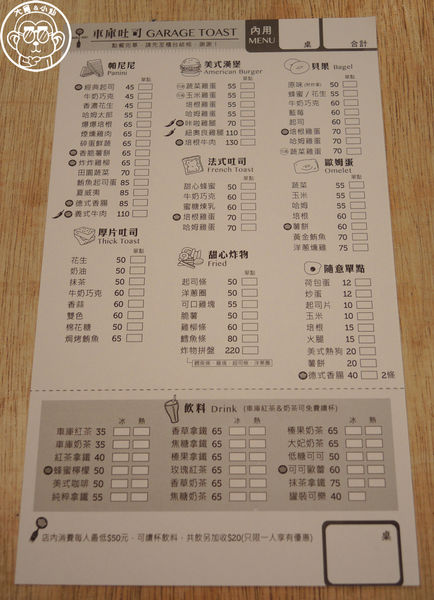 大員&小外
車庫吐司 GARAGE TOAST
點餐完畢,請先至櫃台結帳,謝謝!
內用
MENU
桌
合計
帕尼尼
Panini
單點
經典起司 45
牛奶巧克 45
香濃花生 45
哈姆太郎 55
爆爆培根 65
煙燻雞肉 65
碎蛋鮮蔬 65
香脆薯餅 65
炸炸雞柳 65
田園蔬菜 70
鮪魚起司蛋 85
夏威夷 85
德式香腸 85
義式牛肉 110
厚片吐司
Thick Toast
單點
花生 50
奶油 50
抹茶 50
牛奶巧克 60
香蒜 60
雙色 60
棉花糖 50
焗烤鮪魚 60
美式漢堡
American Burger
單點
蔬菜雞蛋 55
玉米雞蛋 55
培根雞蛋 55
哈姆雞蛋 55
咔啦雞腿 70
紐奧良雞腿 110
培根牛肉 130
法式吐司
French Toast
單點
甜心蜂蜜 50
牛奶巧克 60
蜜糖煉乳 60
培根雞蛋 70
哈姆雞蛋 70
甜心炸物
Fried
單點
起司條 50
洋蔥圈 50
可口雞塊 55
脆薯 50
雞柳條 60
鱈魚條 80
炸物拼盤 220
貝果 Bagel
單點
原味 50
蜂蜜/花生 55
牛奶巧克 60
藍莓 60
起司 60
培根雞蛋 70
哈姆雞蛋 70
蔬菜雞蛋 70
歐姆蛋
Omelet
單點
蔬菜 55
玉米 55
哈姆 55
培根 60
薯餅 60
黃金鮪魚 70
洋蔥燻雞 75
隨意單點
荷包蛋 12
炒蛋 12
起司片 10
玉米 10
培根 15
火腿 15
美式熱狗 20
薯餅 20
德式香腸 40 2條
飲料 Drink (車庫紅茶&奶茶可免費續杯)
冰 熱
車庫紅茶 35
車庫奶茶 35
紅茶拿鐵 40
蜂蜜檸檬 50
美式咖啡 50
純粹拿鐵 55
冰 熱
香草拿鐵 65
焦糖拿鐵 65
榛果拿鐵 65
玫瑰紅茶 65
香草奶茶 65
焦糖奶茶 65
冰 熱
榛果奶茶 65
大妃奶茶 65
低糖可可 50
可可歐蕾 60
抹茶拿鐵 75
罐裝可樂 40
店內消費每人最低$50元,可續杯飲料,共飲另加收$20(只限一人享有優惠)
桌